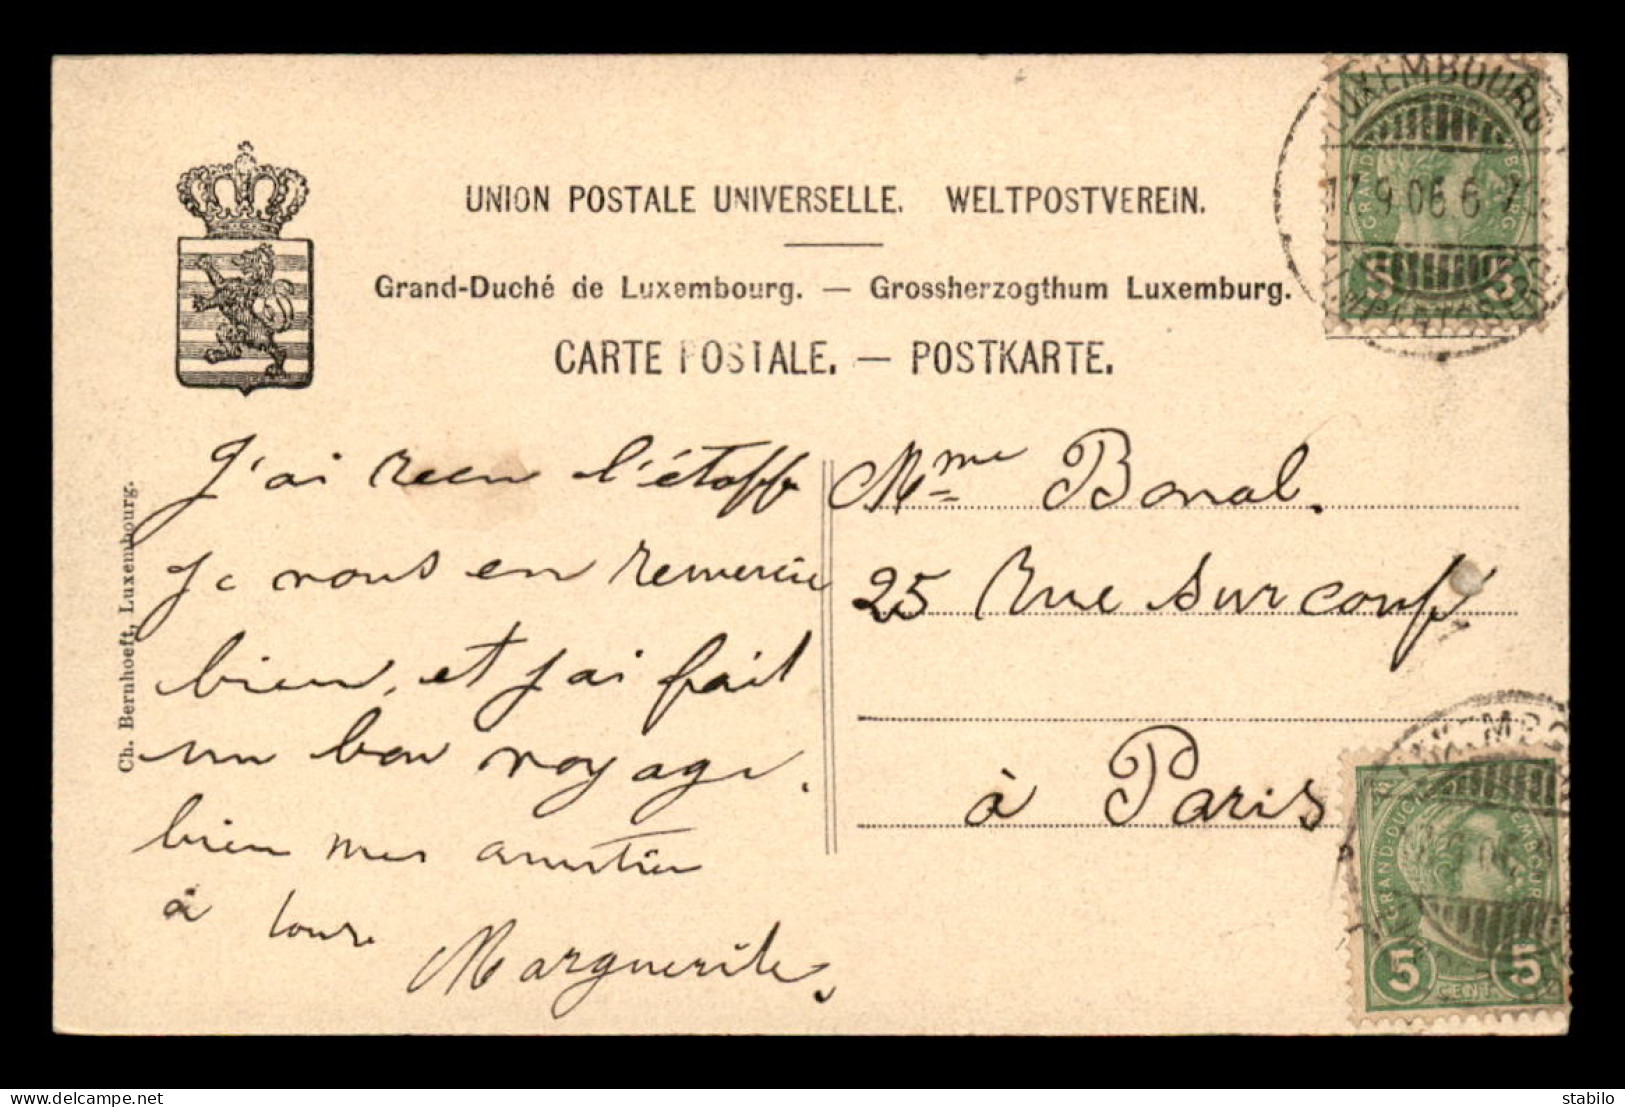 UNION POSTALE UNIVERSELLE. WELTPOSTVEREIN.
Grand-Duché de Luxembourg. — Grossherzogthum Luxemburg.
CARTE POSTALE. — POSTKARTE.
LUXEMBOURG
17.9.06 6-7
5 5
Ch. Bernhoeft, Luxembourg.
J'ai recu l'étoffe
je vous en remercie
bien, et j'ai fait
un bon voyage.
bien mes amitiés
à tous
Marguerite.
Mme Bonal.
25 Rue Surcouf
à Paris
GRAND-DUCHÉ LUXEMBOURG
5 CENT. 5
stabilo
delcampe.net